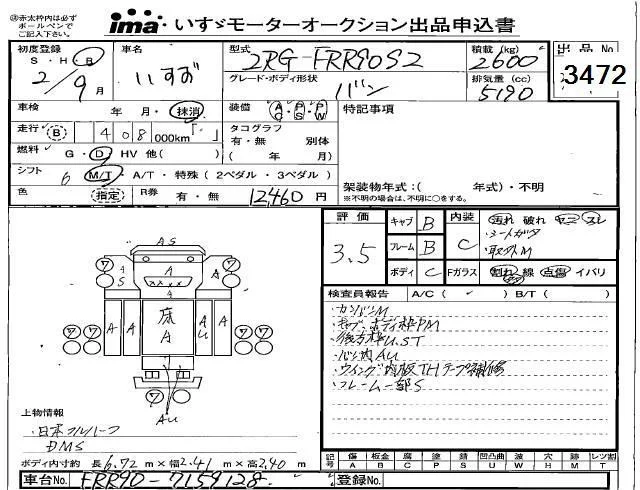 ①赤太枠内は必ず
ボールペンで
ご記入下さい。
ima・いすゞモーターオークション出品申込書
初度登録 S・H・R 2/9月
車名 いすゞ
型式 2RG-FRR90S2
積載(kg) 2600
グレード・ボディ形状 バン
排気量(cc) 5190
出品No. 3472
車検 年・月・抹消
装備 AC PS PW
特記事項
走行 B 408,000km
タコグラフ 有・無 別体
( 年/ 月)
燃料 G・D・HV 他( )
シフト 6 M/T・A/T・特殊(2ペダル・3ペダル)
色 指定
R券 有・無 12460円
架装物年式:( 年式)・不明
※不明の場合は、不明に○をする。
評価 3.5
キャブ B
フレーム B
ボディ C
内装 C
汚れ 破れ ヤニ スレ
・シートガタ
・取外M
Fガラス 割れ 線 点傷 イバリ
検査員報告 A/C( ✓ ) B/T( )
・カンバンM
・キャブ、ボディ枠PM
・後方枠U.ST
・バン内AU
・ウイング内板THテープ補修
・フレーム一部S
AS
ワ A A ワ
S A ×××× A
A
ワ A A 床 A A A ワ
AU
AU
上物情報
・日本フルハーフ
DMS
ボディ内寸約 長6.72m×幅2.41m×高2.40m
記号 傷 A 板金 B 腐 C 塗 P 錆 S 凹凸曲 U 波 W 穴 H 跡 M レツ割 T
車台No. FRR90-7159128
登録No.